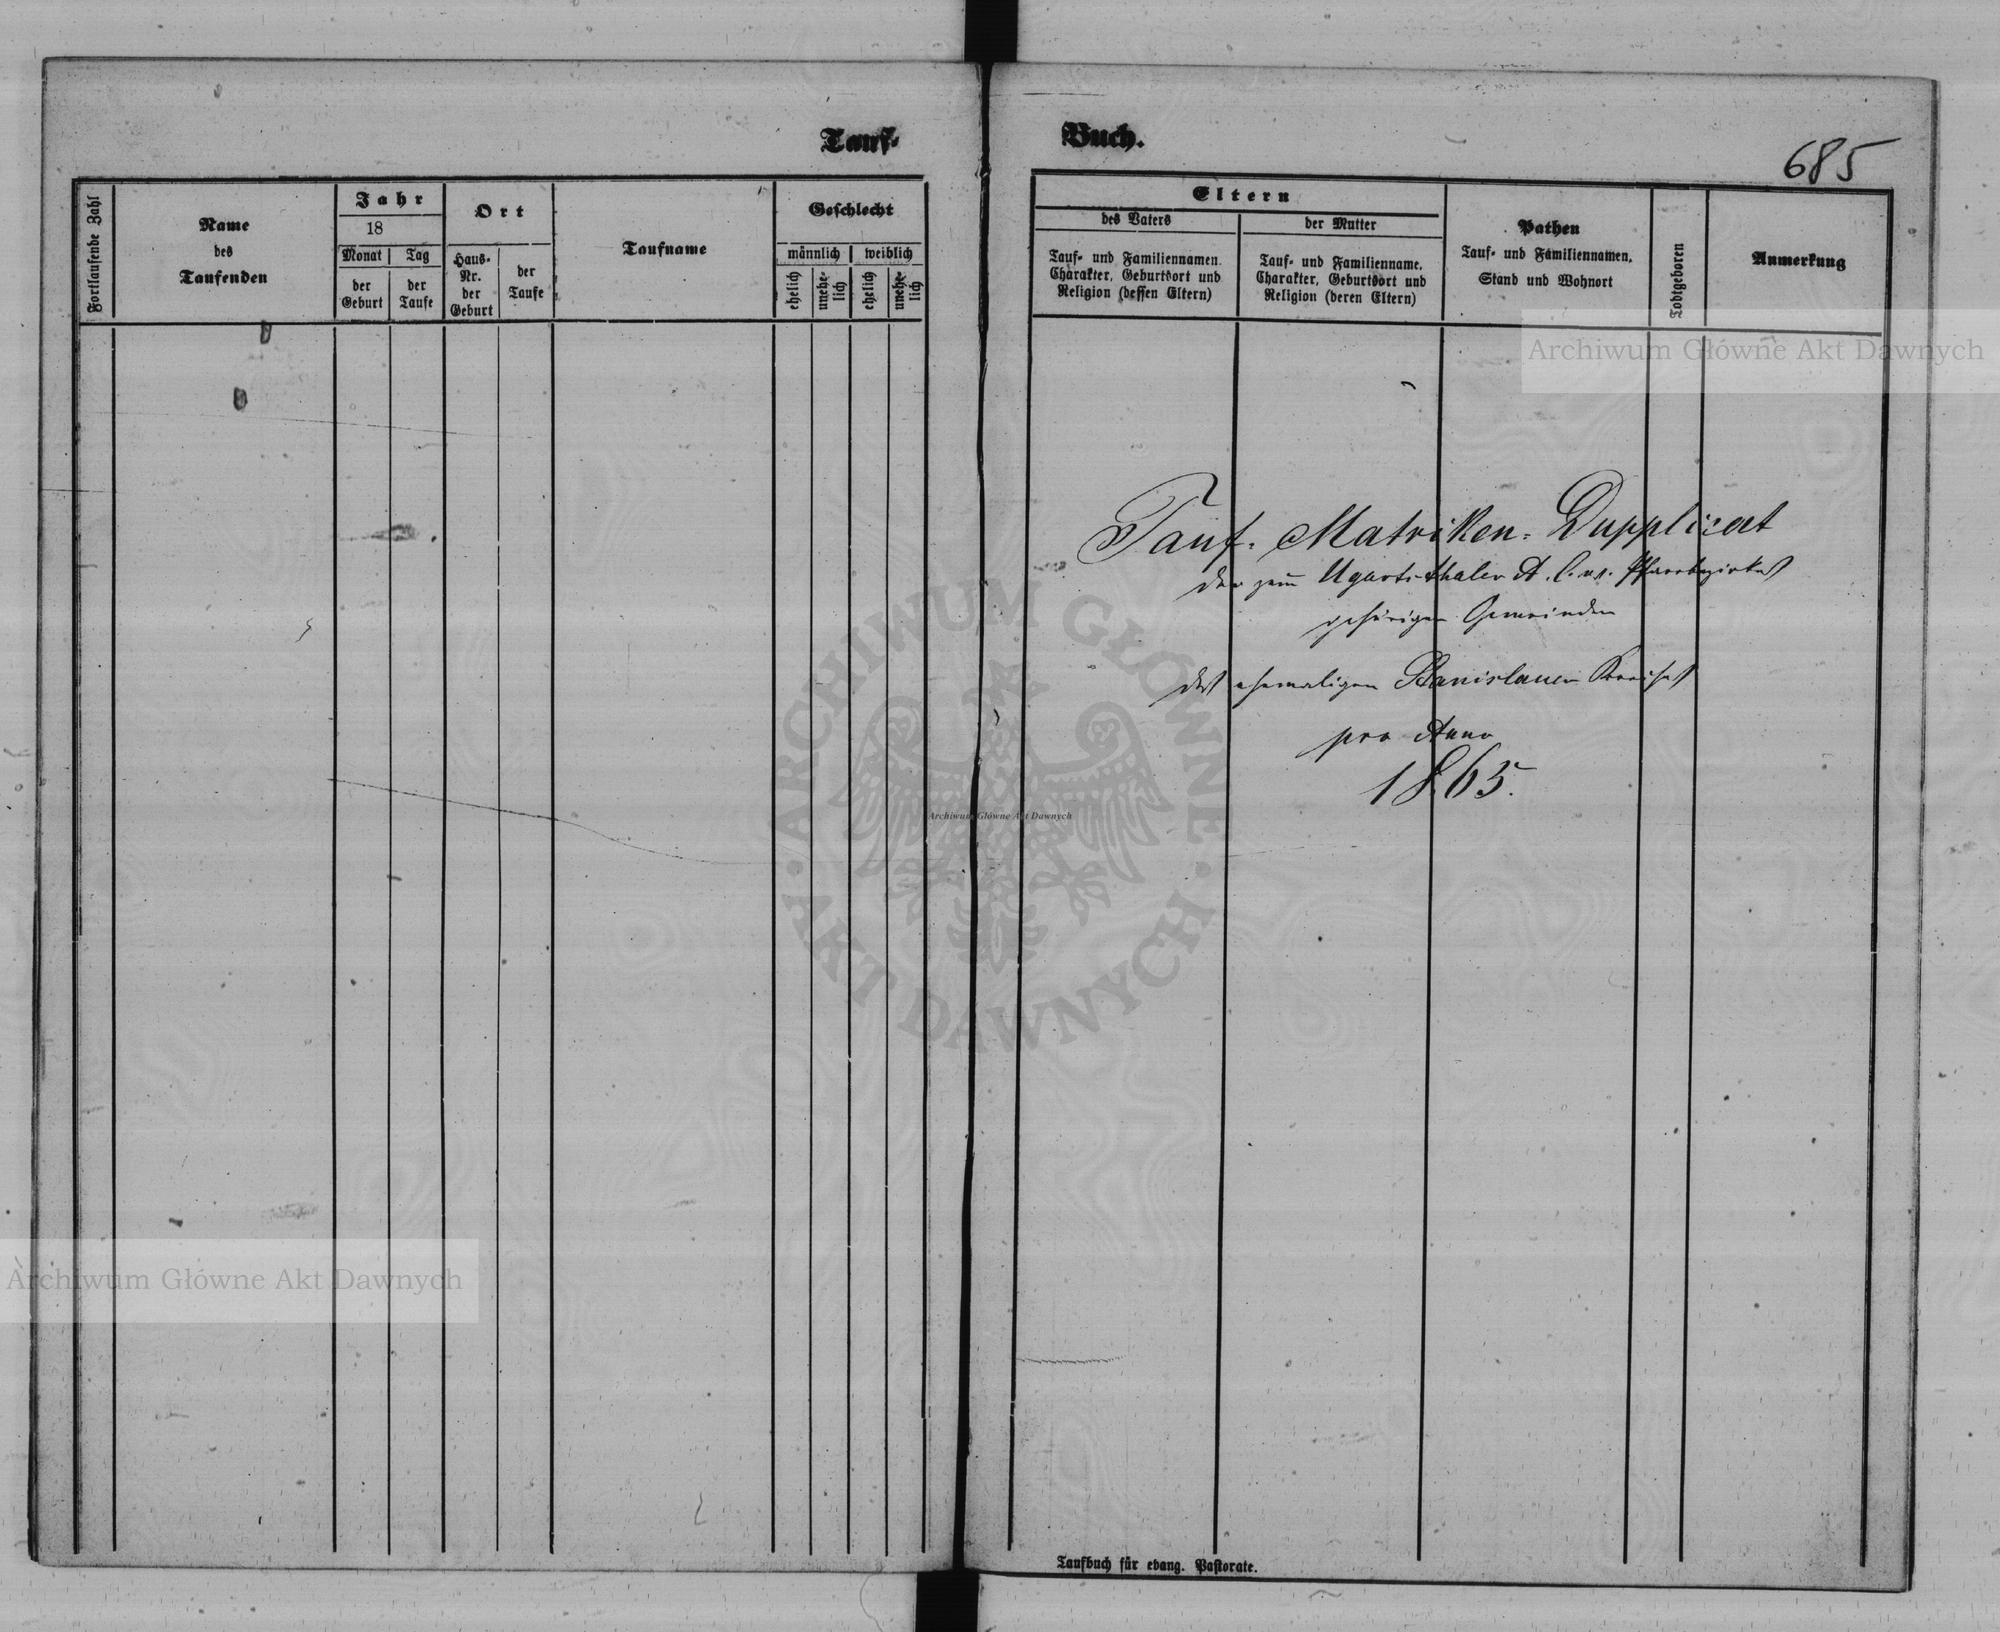 Tauf-
Buch.
685
Fortlaufende Zahl
Name
des
Taufenden
Jahr
18
Monat
Tag
der
Geburt
der
Taufe
Ort
Haus-
Nr.
der
Geburt
der
Taufe
Taufname
Geschlecht
männlich
weiblich
ehelich
unehe-
lich
ehelich
unehe-
lich
Eltern
des Vaters
Tauf- und Familiennamen.
Charakter, Geburtsort und
Religion (dessen Eltern)
der Mutter
Tauf- und Familienname.
Charakter, Geburtsort und
Religion (deren Eltern)
Pathen
Tauf- und Familiennamen,
Stand und Wohnort
Todtgeboren
Anmerkung
Archiwum Główne Akt Dawnych
Tauf-Matriken-Dupplicat
der zum Ugartsthaler A. C. Pfarrbezirkes
gehörigen Gemeinden
des ehemaligen Stanislauer Kreises
pro Anno
1865.
ARCHIWUM GŁÓWNE
AKT DAWNYCH
Archiwum Główne Akt Dawnych
Archiwum Główne Akt Dawnych
Taufbuch für evang. Pastorate.